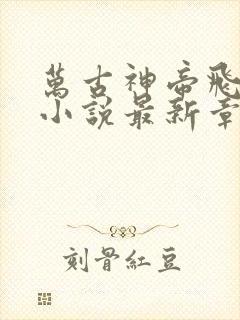 萬古神帝飛
小說最新章
刻骨紅豆